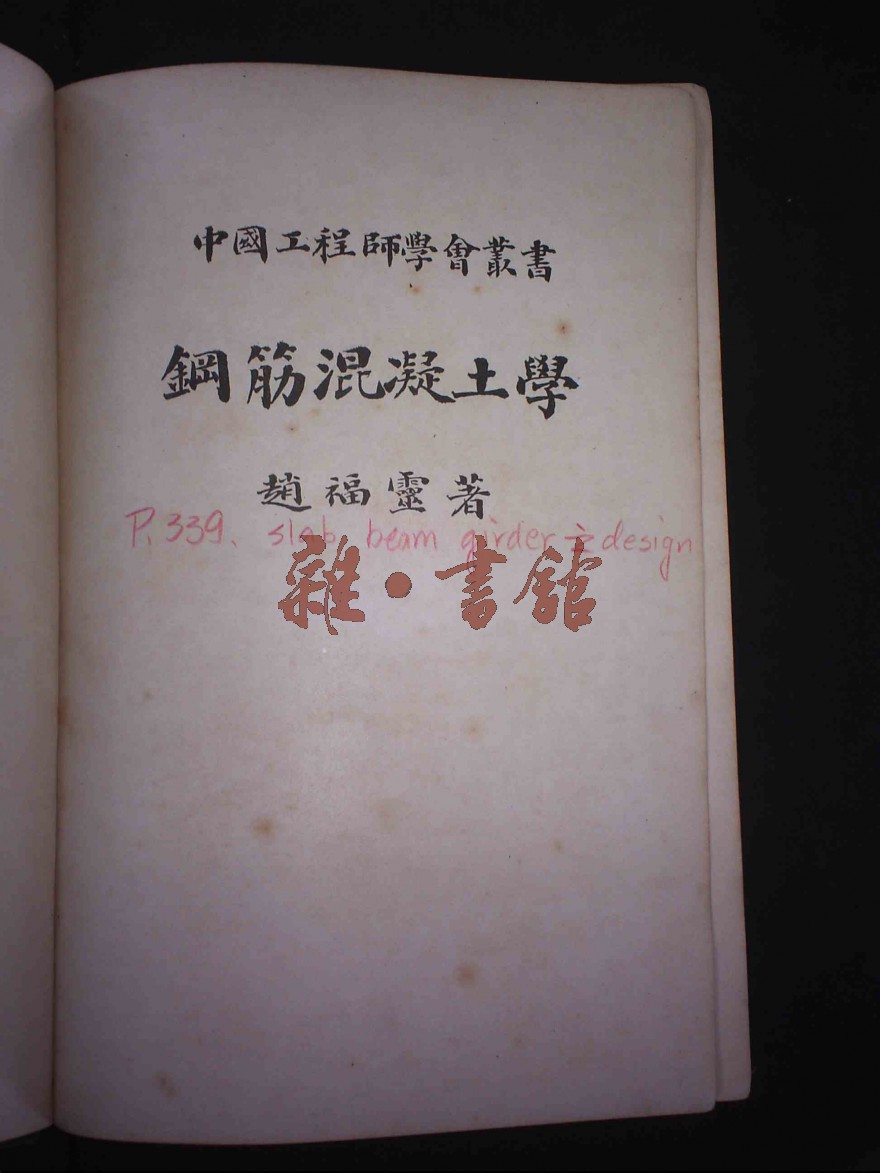 中國工程師學會叢書
鋼筋混凝土學
趙福靈著
P. 339. slab beam girder 之 design
雜·書館